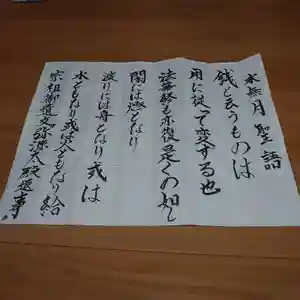 水無月 聖語
銭と云うものは
用に従って変ずる也
法華経も亦復是くの如し
闇には燈となり
渡りには舟となり或は
水ともなり或は火ともなり給
宗祖御遺文 弥源太殿返事